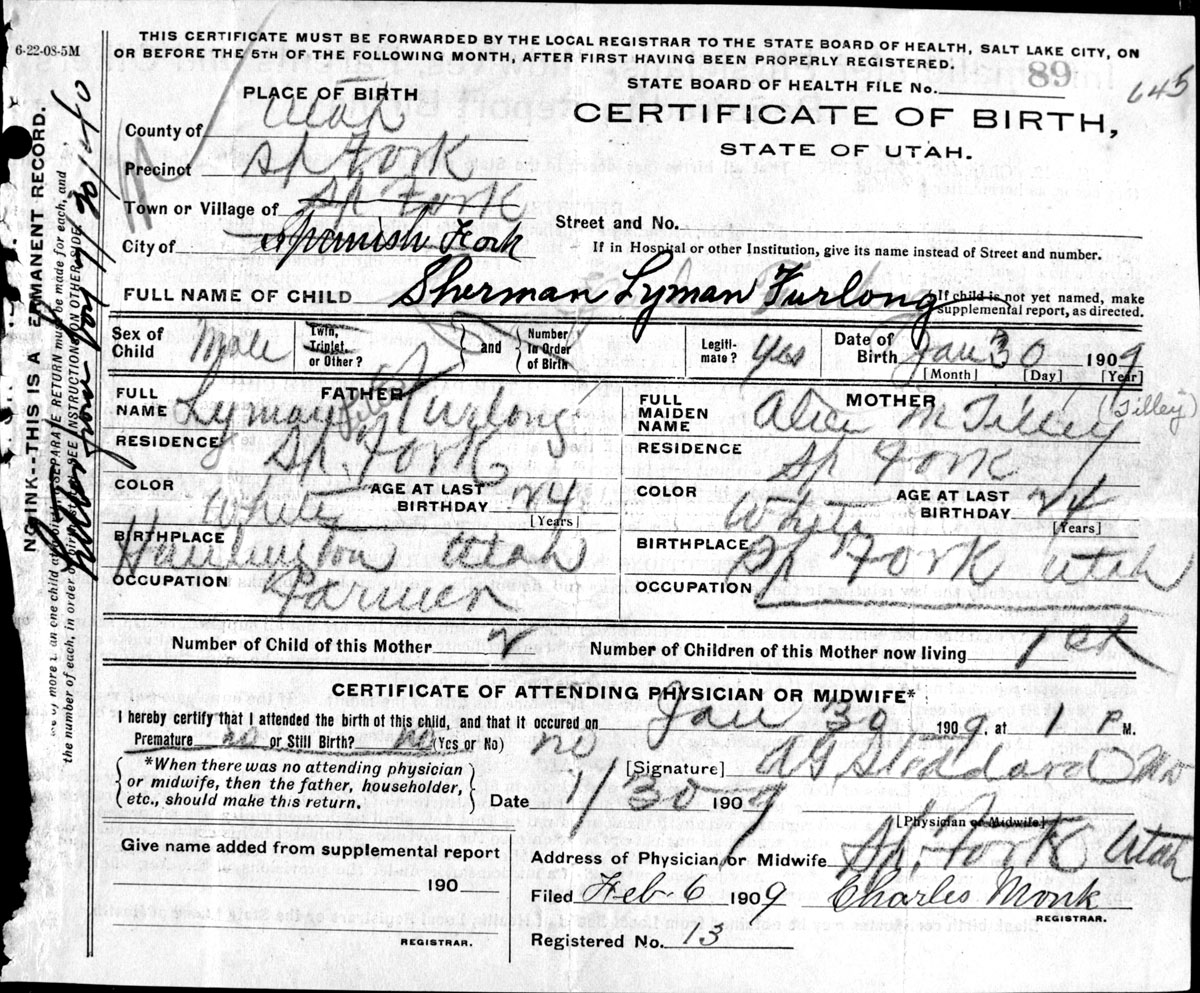 6-22-08-5M
THIS CERTIFICATE MUST BE FORWARDED BY THE LOCAL REGISTRAR TO THE STATE BOARD OF HEALTH, SALT LAKE CITY, ON
OR BEFORE THE 5TH OF THE FOLLOWING MONTH, AFTER FIRST HAVING BEEN PROPERLY REGISTERED.
STATE BOARD OF HEALTH FILE No. 89
645
PLACE OF BIRTH
CERTIFICATE OF BIRTH,
STATE OF UTAH.
County of Utah
Precinct Sp Fork
Town or Village of Sp Fork
Street and No.
City of Spanish Fork
If in Hospital or other Institution, give its name instead of Street and number.
FULL NAME OF CHILD Sherman Lyman Furlong
If child is not yet named, make
supplemental report, as directed.
Sex of Child Male
Twin, Triplet, or Other?
and
Number in Order of Birth
Legiti-mate? Yes
Date of Birth Jan 30 1909
[Month] [Day] [Year]
FATHER
FULL NAME Lyman Furlong
RESIDENCE Sp. Fork
COLOR White
AGE AT LAST BIRTHDAY 24
[Years]
BIRTHPLACE Utah
OCCUPATION Farmer
MOTHER
FULL MAIDEN NAME Alice M Tilley (Tilley)
RESIDENCE Sp Fork
COLOR White
AGE AT LAST BIRTHDAY 24
[Years]
BIRTHPLACE Sp Fork Utah
OCCUPATION
Number of Child of this Mother 2
Number of Children of this Mother now living 1
CERTIFICATE OF ATTENDING PHYSICIAN OR MIDWIFE*
I hereby certify that I attended the birth of this child, and that it occured on Jan 30 1909, at 1 P M.
Premature no or Still Birth? no (Yes or No) no
*When there was no attending physician
or midwife, then the father, householder,
etc., should make this return.
[Signature] Stoddard MD
Date 1/30 1909
[Physician or Midwife]
Give name added from supplemental report
190
REGISTRAR.
Address of Physician or Midwife Sp. Fork Utah
Filed Feb 6 1909 Charles Monk
REGISTRAR.
Registered No. 13
NO INK--THIS IS A EMANENT RECORD.
more an one child a SEPARATE RETURN must be made for each, and
the number of each, in order SEE INSTRUCTIONS ON OTHER SIDE